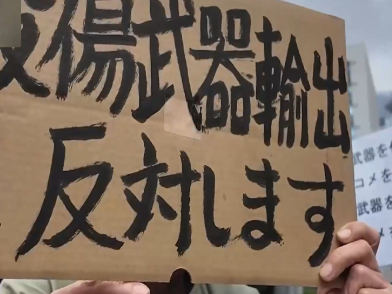 殺傷武器輸出
反対します
武器を
コメを
武器を